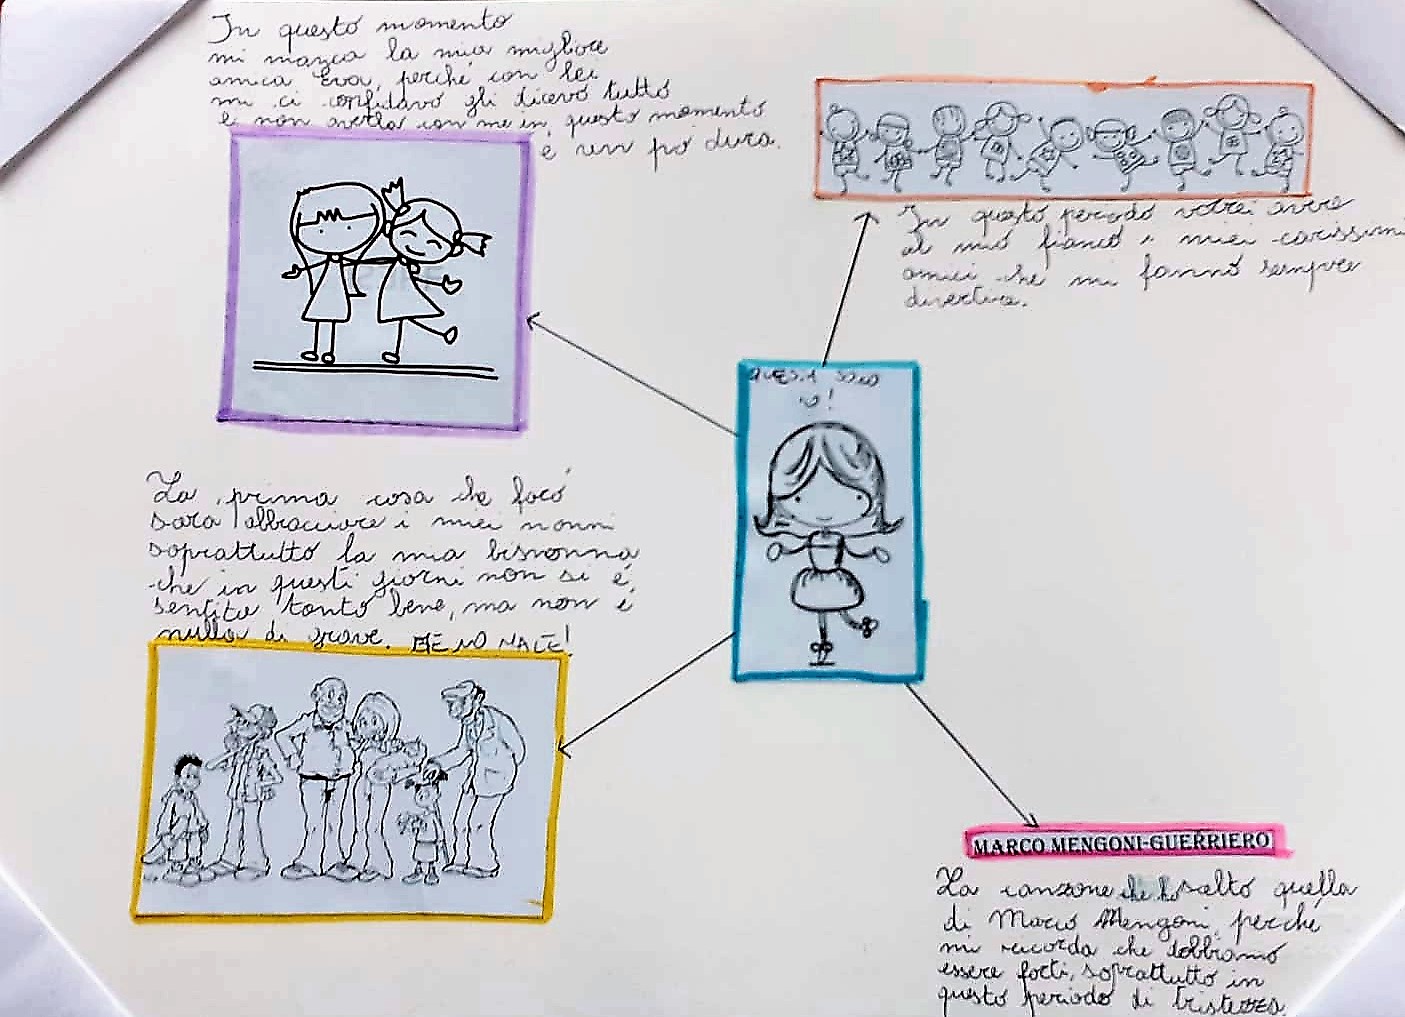 In questo momento
mi manca la mia migliore
amica Eva, perché con lei
mi ci confidavo gli dicevo tutto
e non averla con me in questo momento
è un pò dura.
In questo periodo vorrei avere
al mio fianco i miei carissimi
amici che mi fanno sempre
divertire.
QUESTA SONO
IO!
La prima cosa che farò
sarà abbracciare i miei nonni
soprattutto la mia bisnonna
che in questi giorni non si è
sentita tanto bene, ma non è
nulla di grave. MENO MALE!
MARCO MENGONI-GUERRIERO
La canzone che ho scelto quella
di Marco Mengoni, perché
mi ricorda che dobbiamo
essere forti, soprattutto in
questo periodo di tristezza.